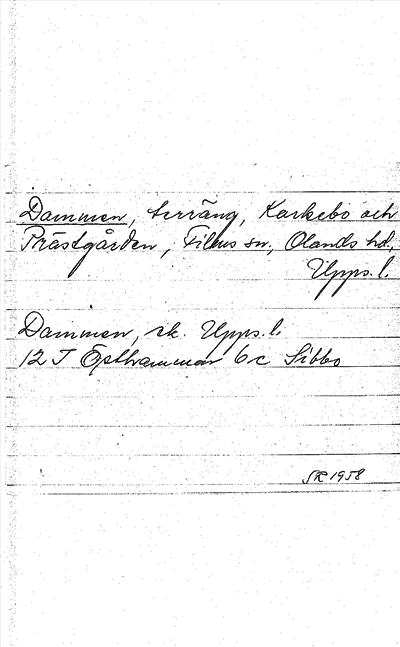 Dammen, terräng, Karkebo och
Prästgården, Films sn., Olands hd,
Upps. l.
Dammen, sk. Upps. l.
12 I Östhammar 6c Sibbo
SR 1958